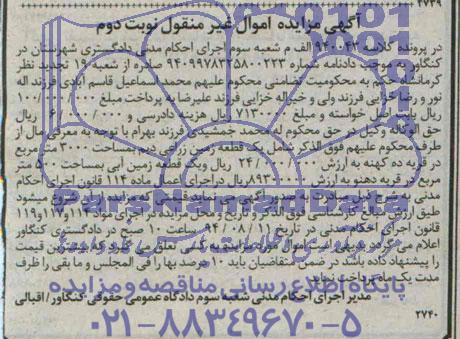 ۲۷۳۹
آگهی مزایده اموال غیر منقول نوبت دوم
در پرونده کلاسه ۹۴۰۰۴۳ الف م شعبه سوم اجرای احکام مدنی دادگستری شهرستان در
کنگاور به موجب دادنامه شماره ۹۴۰۹۹۷۸۳۲۵۸۰۰۲۲۳ صادره از شعبه ۱۹ تجدید نظر
کرمانشاه حکم به محکومیت تضامنی محکوم علیهم محمد اسماعیل قاسم آبادی فرزند اله
نور و رضا خزایی فرزند ولی و خیراله خزایی فرزند علیرضا به پرداخت مبلغ ۱۰۰/۰۰۰/۰۰۰
ریال بابت اصل خواسته و مبلغ ریال هزینه دادرسی و ریال
حق الوکاله وکیل در حق محکوم له محمد جمشیدی فرزند بهرام با توجه به معرفی مال از
طرف محکوم علیهم فوق الذکر شامل یک قطعه زمین زراعی دیم بمساحت ۳۰۰۰ متر مربع
در قریه ده کهنه به ارزش ریال ویک قطعه زمین آبی بمساحت متر
مربع در قریه دهنو به ارزش ریال در اجرای اعمال ماده ۱۱۴ قانون اجرای احکام
مدنی به شرح ذیل مبادرت به صدور آگهی می نماید قیمتی که مزایده از آن شروع میشود
طبق ارزش مبالغ کارشناسی فوق الذکر و تاریخ و محل مزایده در اجرای مواد ۱۱۴و۱۱۷و۱۱۹
قانون اجرای احکام مدنی در تاریخ ۹۴/۰۸/۱۱ ساعت ۱۰ صبح در دادگستری کنگاور
اعلام می گردد بدیهی است اموال مورد مزایده به کسی متعلق می گردد که بالاترین قیمت
را پیشنهاد داده باشد در ضمن متقاضیان باید ۱۰ درصد بها را فی المجلس و ما بقی را ظرف
مدت یک ماه پرداخت نماید
پایگاه اطلاع رسانی مناقصه و مزایده
مدیر اجرای احکام مدنی شعبه سوم دادگاه عمومی حقوقی کنگاور / اقبالی
۲۷۴۰
۰۲۱-۸۸۳۴۹۶۷۰-۵